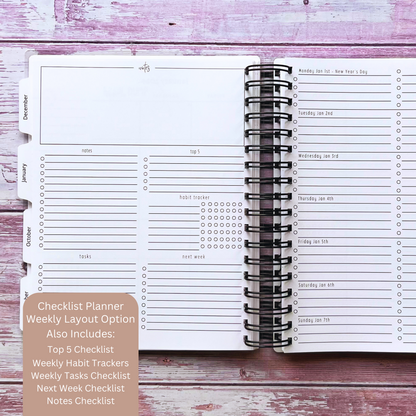 notes
notes
top 5
habit tracker
tasks
next week
December
January
October
Monday Jan 1st - New Year's Day
Tuesday Jan 2nd
Wednesday Jan 3rd
Thursday Jan 4th
Friday Jan 5th
Saturday Jan 6th
Sunday Jan 7th
Checklist Planner
Weekly Layout Option
Also Includes:
Top 5 Checklist
Weekly Habit Trackers
Weekly Tasks Checklist
Next Week Checklist
Notes Checklist